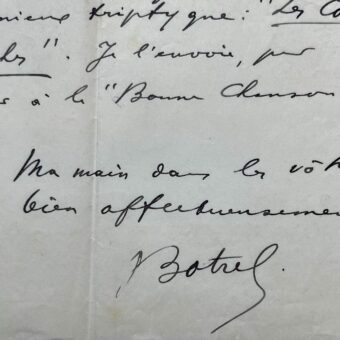 triptyque : "Les Co
hes". Je l'envoie, par
à la "Bonne Chanson
Ma main dans les vôt
bien affectueusemen
Botrel.